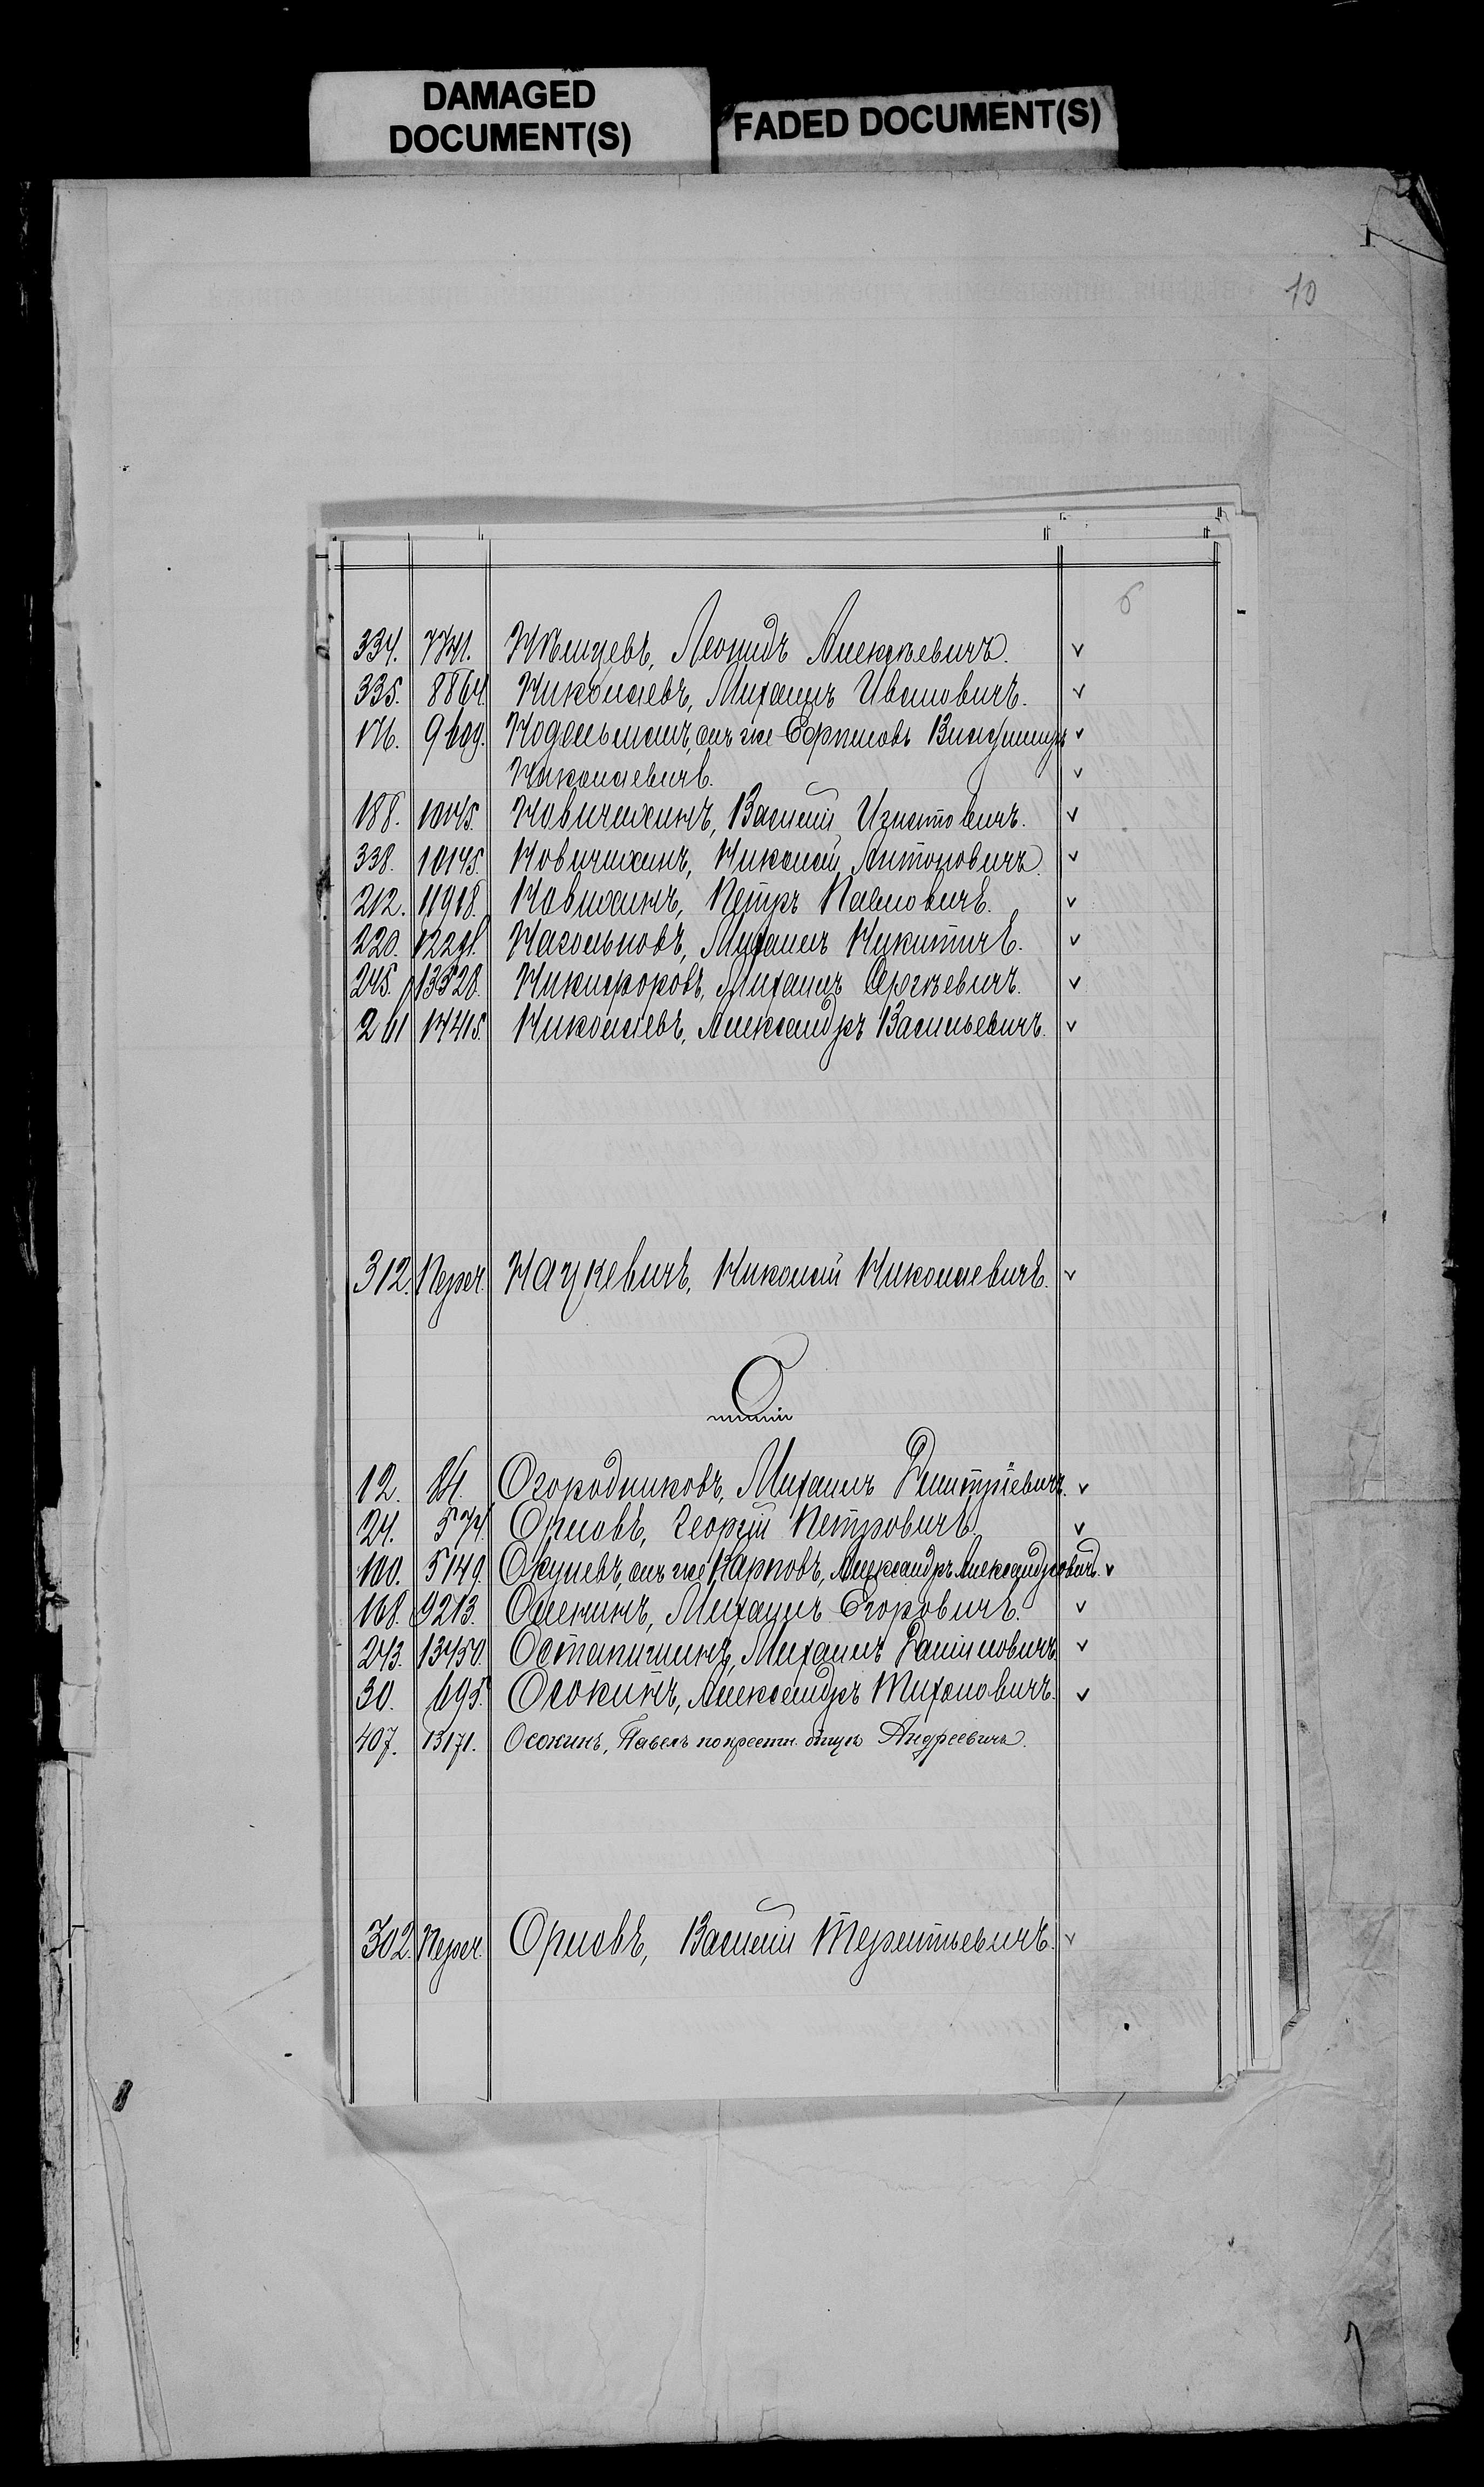 DAMAGED
DOCUMENT(S)
FADED DOCUMENT(S)
10
334. 7741. Нѣмцевъ, Леонидъ Алексѣевичъ.
335. 8864. Николаевъ, Михаилъ Ивановичъ.
176. 9609. онъ же Владиміръ
Николаевичъ.
188. 10045. Новичихинъ, Василій Игнатовичъ.
338. 10145. Новичихинъ, Николай Антоновичъ.
212. 11918. Новихинъ, Петръ Павловичъ.
220. 12291. Нагольновъ, Михаилъ Никитичъ.
245. 13528. Никифоровъ, Михаилъ Сергѣевичъ.
261 14415. Николаевъ, Александръ Васильевичъ.
312. Переч. Нацкевичъ, Николай Николаевичъ.
О
12. 84. Огородниковъ, Михаилъ Дмитріевичъ.
24. 574. Орловъ, Георгій Петровичъ.
100. 5149. Окуневъ, онъ же Карповъ, Александръ Александровичъ.
168. 9213. Оленинъ, Михаилъ Егоровичъ.
243. 13450. Остапишинъ, Михаилъ Даниловичъ.
30. 695. Осокинъ, Александръ Тихоновичъ.
407. 13171. Осокинъ, Павелъ по крестн. отцу Андреевичъ.
302. Переч. Орловъ, Василій Терентьевичъ.